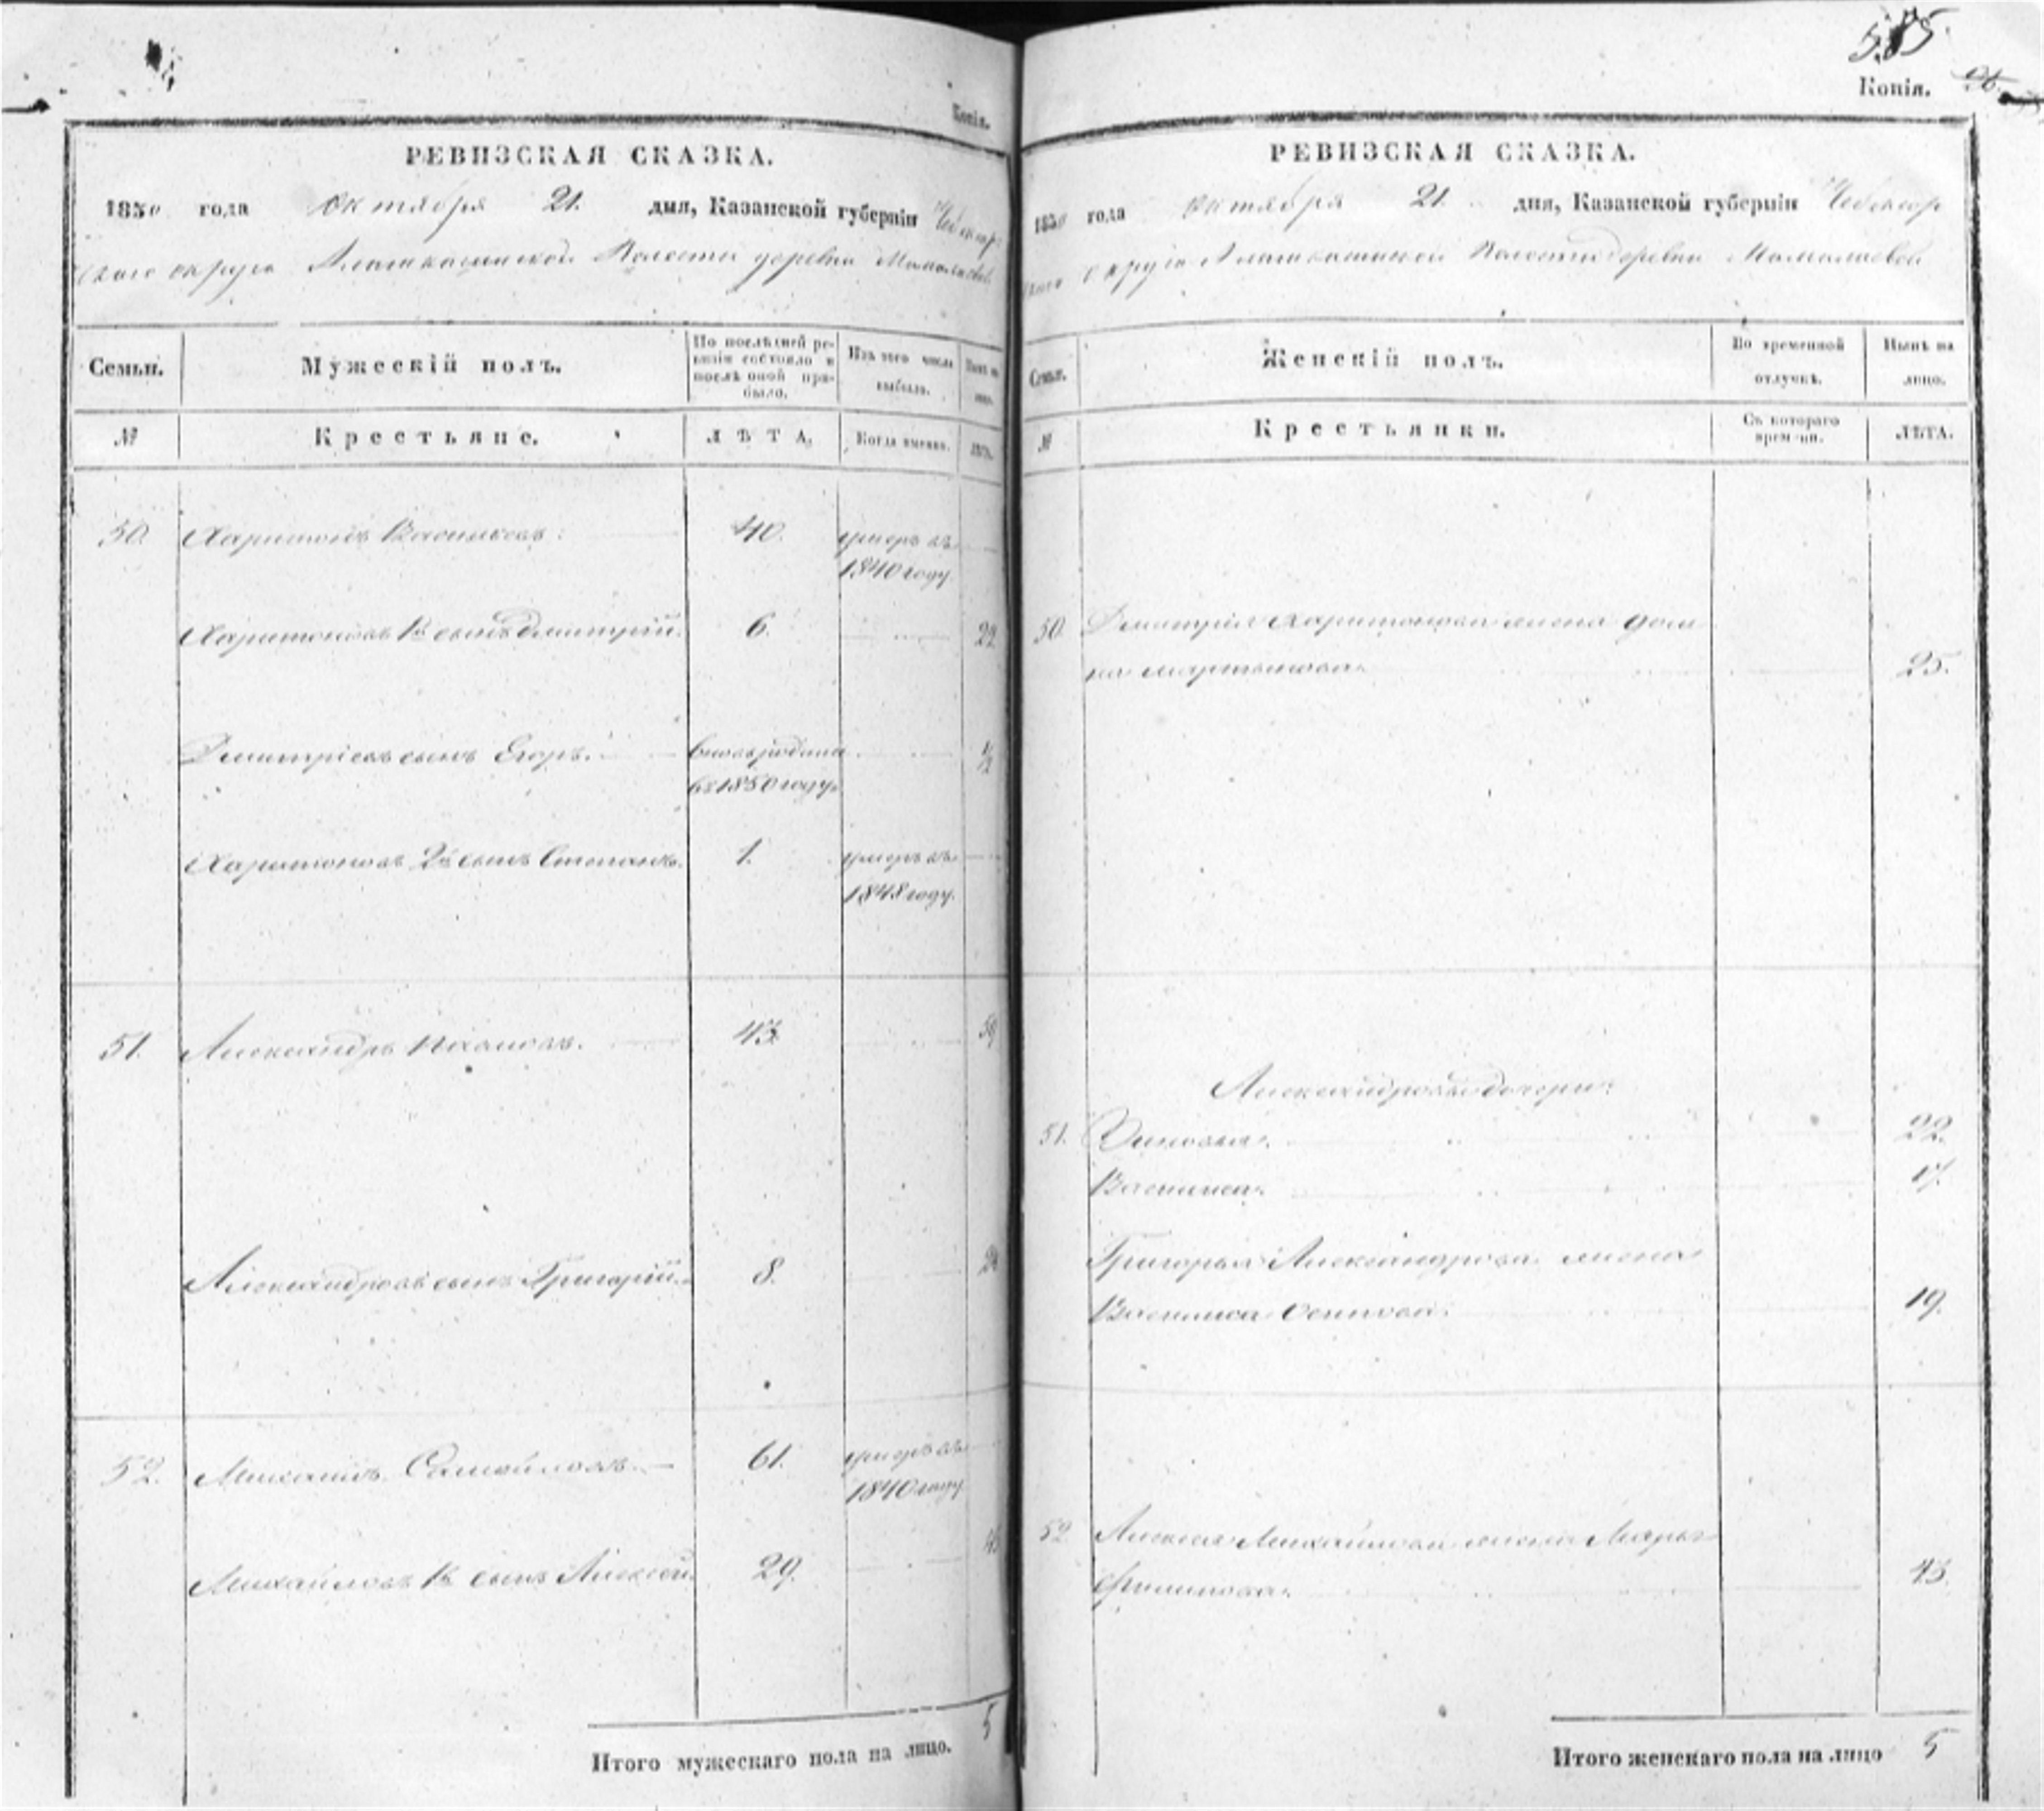 Копія.
РЕВИЗСКАЯ СКАЗКА.
1850 года Октября 21. дня, Казанской губерніи Чебоксар
скаго округа волости деревни
Семьи.
Мужескій полъ.
По послѣдней ре-
визіи состояло и
послѣ оной при-
было.
Изъ того числа
выбыло.
Нынѣ на
лицо.
№
Крестьяне.
ЛѢТА.
Когда именно.
ЛѢТА.
50. Харитонъ Васильевъ: 40. умеръ въ
1840 году.
Харитоновъ 1й сынъ Дмитрій. 6. 22
Дмитріевъ сынъ Егоръ. вновь рожденъ 1/2
въ 1850 году.
Харитоновъ 2й сынъ Степанъ. 1. умеръ въ
1848 году.
51. Александръ 43.
Александровъ сынъ Григорій. 8.
52. Михаилъ Самойловъ. 61. умеръ въ
1840 году.
Михайловъ 1й сынъ Алексѣй. 29.
5
Итого мужескаго пола на лицо.
585
Копія.
РЕВИЗСКАЯ СКАЗКА.
1850 года Октября 21. дня, Казанской губерніи Чебоксар
скаго округа волости деревни
Семьи.
Женскій полъ.
Во временной
отлучкѣ.
Нынѣ на
лицо.
№
Крестьянки.
Съ котораго
времени.
ЛѢТА.
50. Дмитрія Харитонова жена Дом
на Мартынова. 25.
Александровы дочери:
51. Зиновья. 22.
Василиса. 17.
Григорья Александрова жена
Василиса Осипова. 19.
52 Алексѣя Михайлова жена Марья
Филипова. 43.
Итого женскаго пола на лицо 5